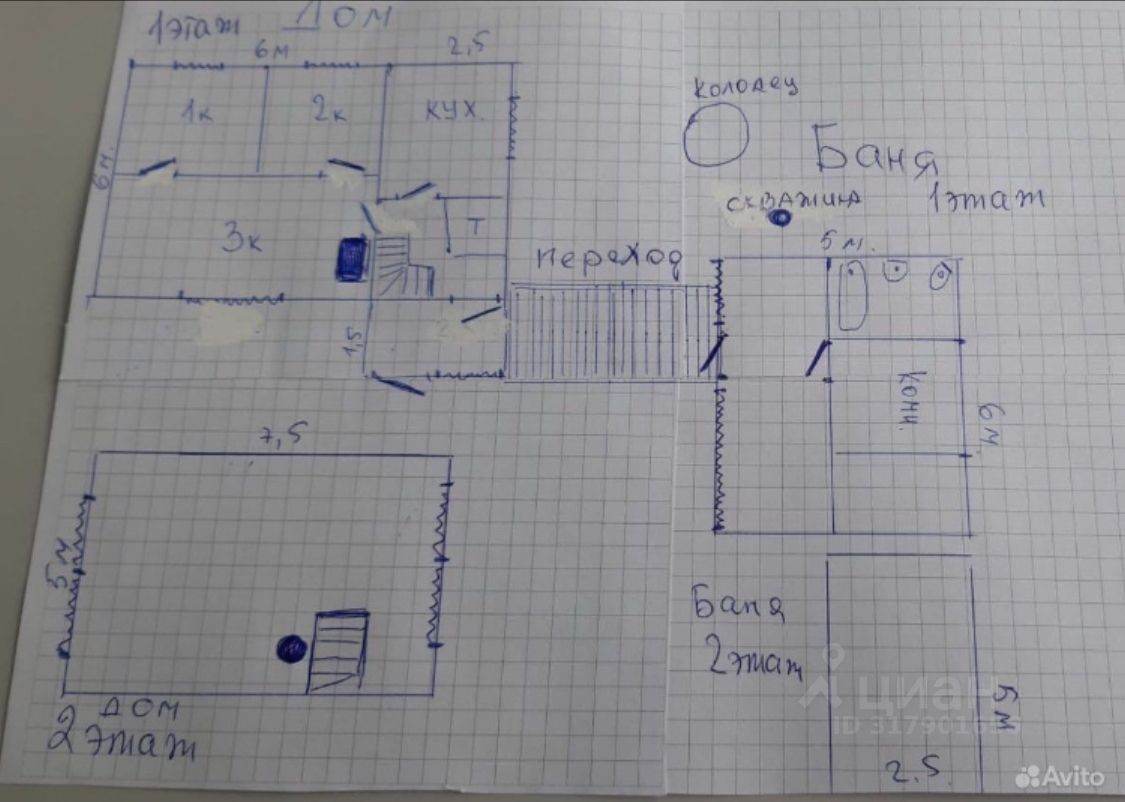 1этаж Дом
6м
2,5
1к
2к
кух.
6м.
3к
Т
1,5
переход
колодец
Баня
1этаж
скважина
5м.
Комн.
6м
7,5
5м
дом
2 этаж
Баня
2этаж
5м
2.5
циан
ID 3179016
Avito